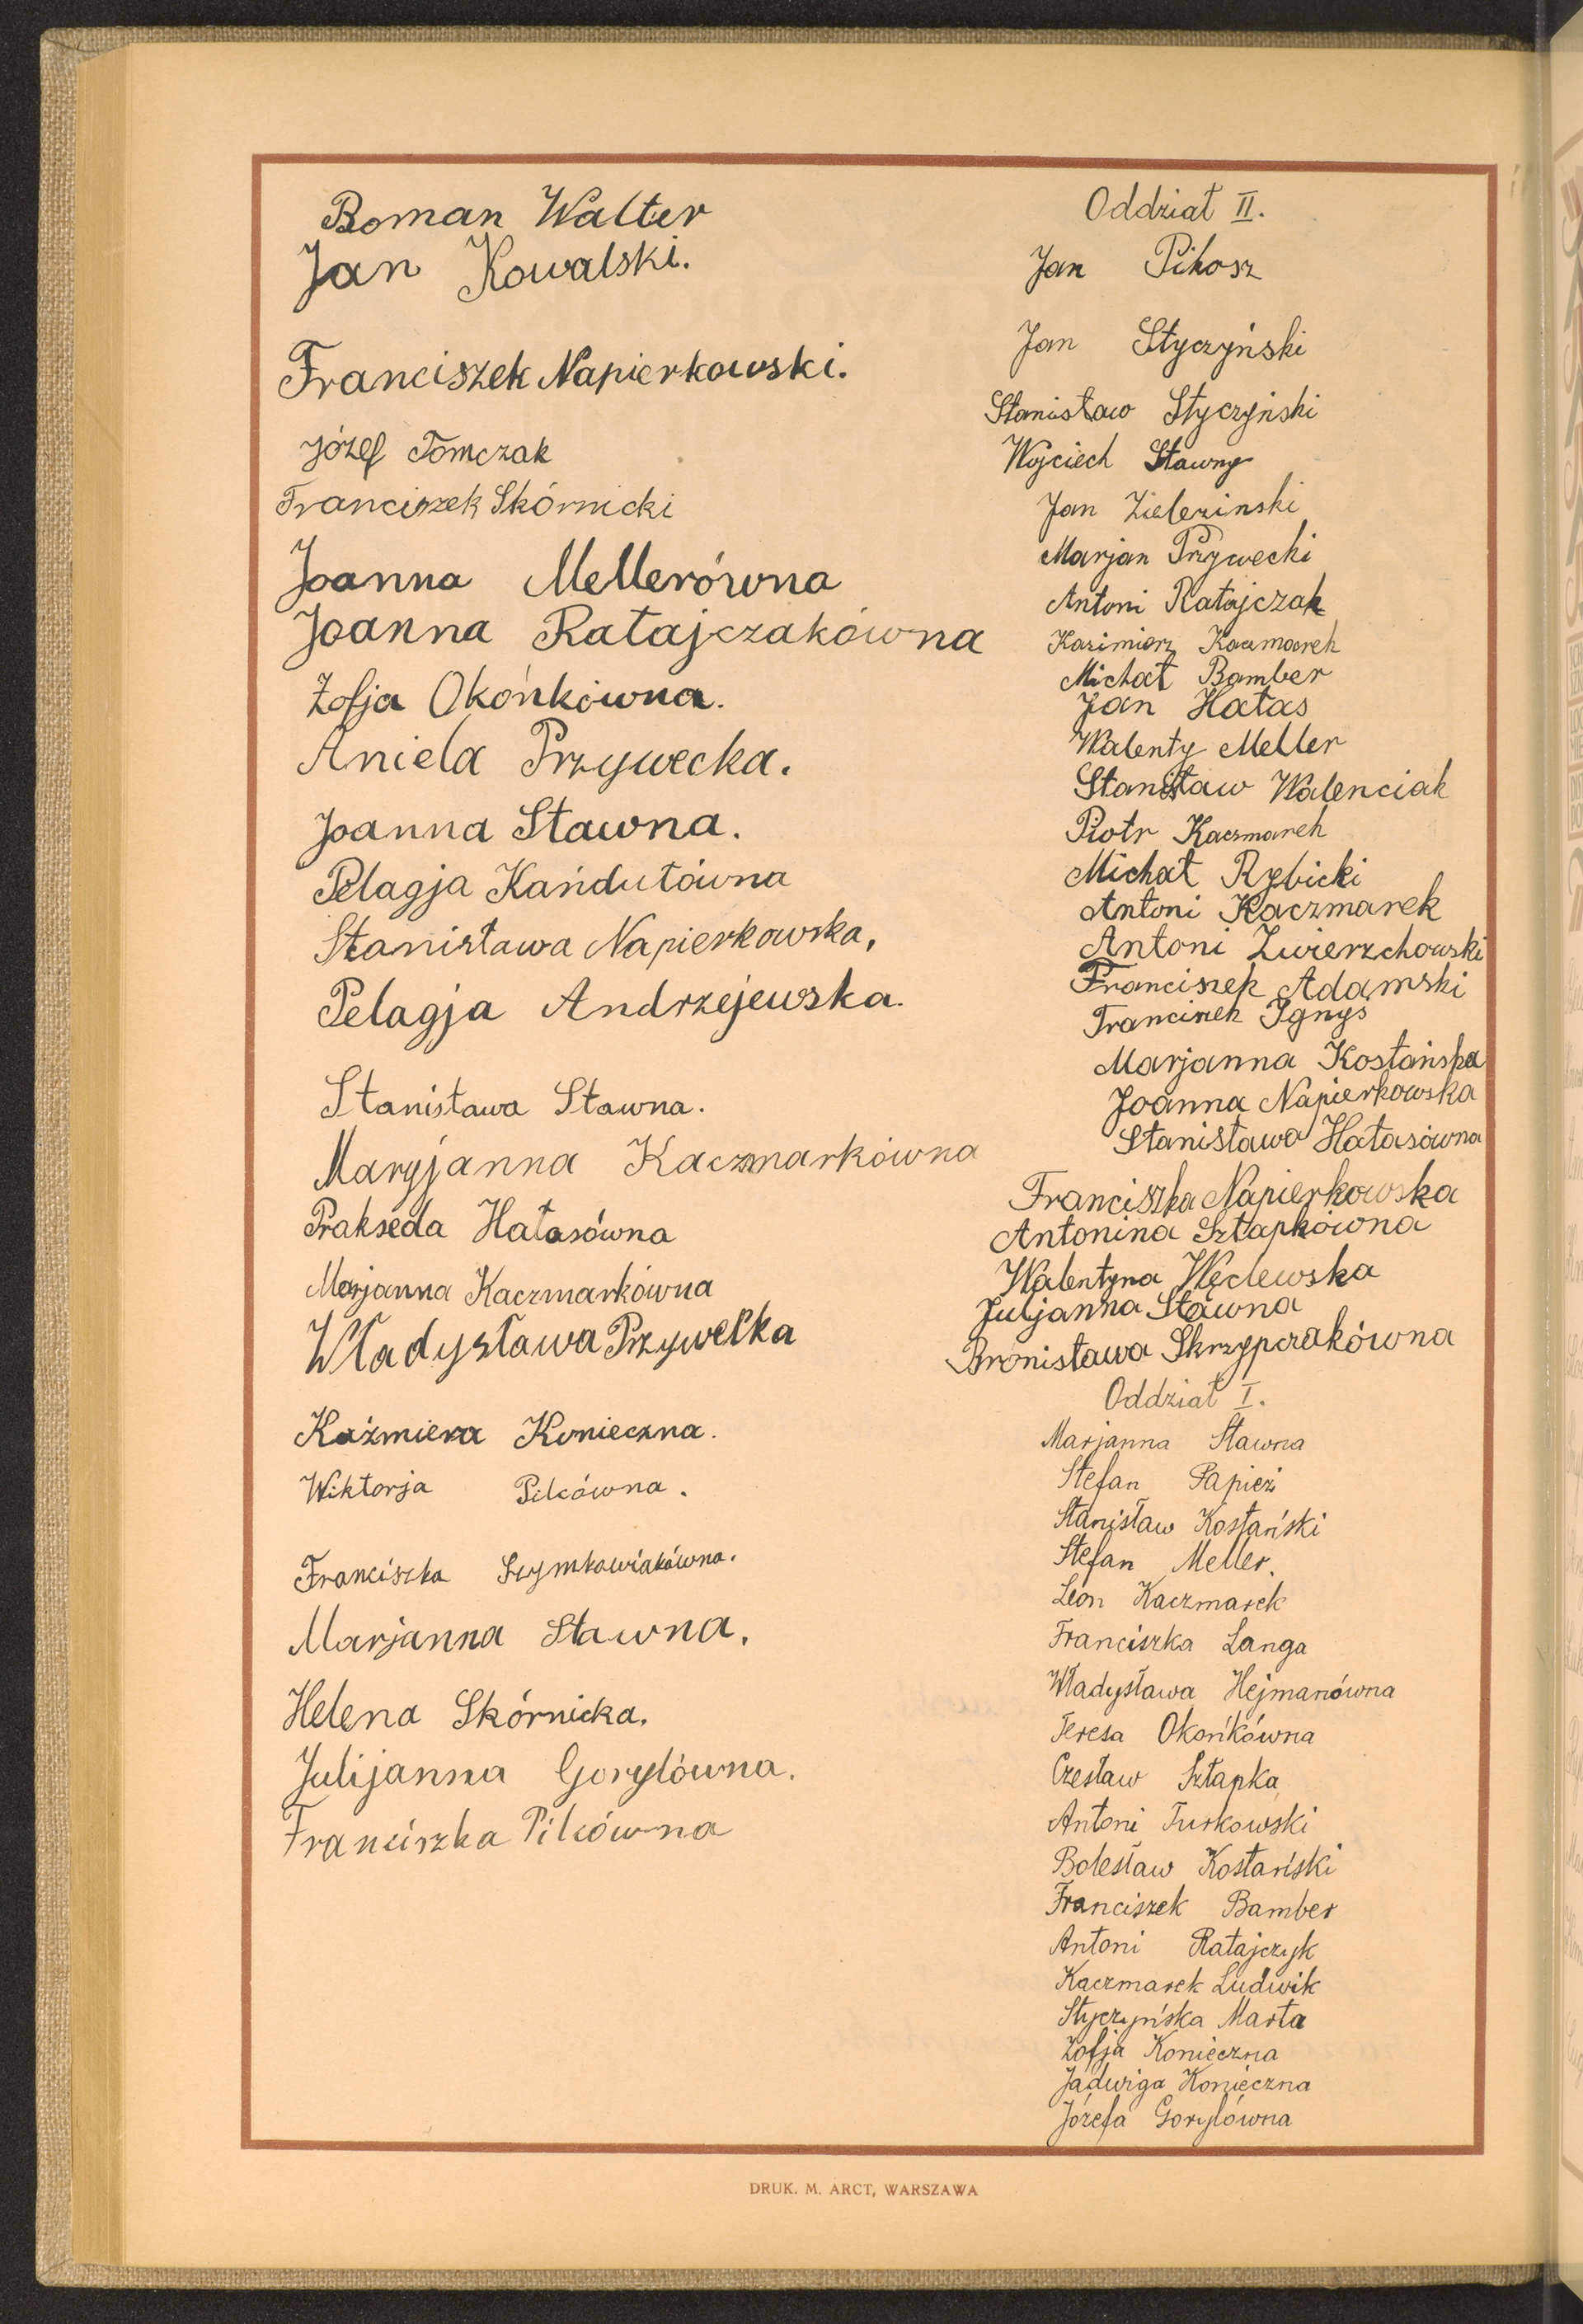 Roman Walter
Jan Kowalski.
Franciszek Napierkowski.
Józef Tomczak
Franciszek Skórnicki
Joanna Mellerówna
Joanna Ratajczakówna
Zofja Okońkówna.
Aniela Przywecka.
Joanna Sławna.
Pelagja Kańdułówna
Stanisława Napierkowska,
Pelagja Andrzejewska.
Stanisława Sławna.
Maryjanna Kaczmarkówna
Prakseda Hałasówna
Marjanna Kaczmarkówna
Władysława Przywecka
Kaźmiera Konieczna.
Wiktorja Pilcówna.
Franciszka Szymkowiakówna.
Marjanna Sławna.
Helena Skórnicka.
Julijanna Gorylówna.
Franciszka Pilcówna
Oddział II.
Jan Pihosz
Jan Styczyński
Stanisław Styczyński
Wojciech Sławny
Jan Zieleziński
Marjan Przywecki
Antoni Ratajczak
Kazimierz Kaczmarek
Michał Bamber
Jan Hałas
Walenty Meller
Stanisław Walenciak
Piotr Kaczmarek
Michał Rybicki
Antoni Kaczmarek
Antoni Zwierzchowski
Franciszek Adamski
Franciszek Ignyś
Marjanna Kostańska
Joanna Napierkowska
Stanisława Hałasówna
Franciszka Napierkowska
Antonina Sztapkówna
Walentyna Węclewska
Juljanna Sławna
Bronisława Skrzypczakówna
Oddział I.
Marjanna Sławna
Stefan Papież
Stanisław Kostański
Stefan Meller.
Leon Kaczmarek
Franciszka Langa
Władysława Hejmanówna
Teresa Okońkówna
Czesław Sztapka
Antoni Turkowski
Bolesław Kostański
Franciszek Bamber
Antoni Ratajczyk
Kaczmarek Ludwik
Styczyńska Marta
Zofja Konieczna
Jadwiga Konieczna
Józefa Gorylówna
DRUK. M. ARCT, WARSZAWA